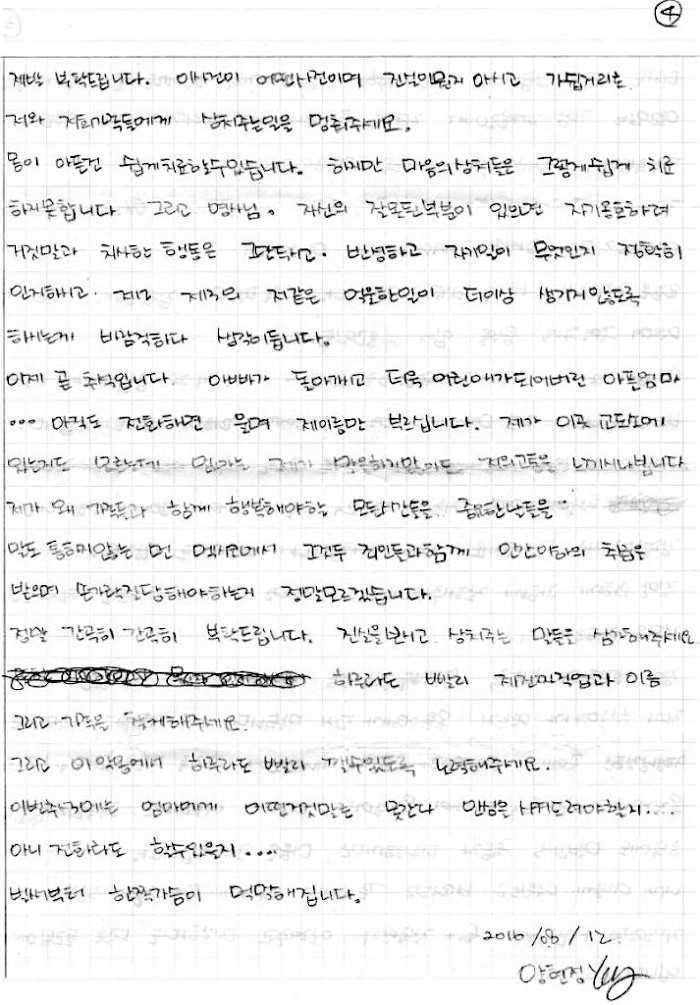 ④
제발 부탁드립니다. 이사건이 어떤사건이며 진실이뭔지 아시고 가십거리로
저와 저희가족들에게 상처주는일을 멈춰주세요.
몸이 아픈건 쉽게치료할수있습니다. 하지만 마음의상처들은 그렇게쉽게 치료
하지못합니다 그리고 영사님. 자신의 잘못된부분이 있으면 자기옹호하려
거짓말과 치사한 행동은 그만두시고. 반성하고 자기일이 무엇인지 정확히
인지하시고. 제2 제3의 저같은 억울한일이 더이상 생기지않도록
하시는게 바람직하다 생각이듭니다.
이제 곧 추석입니다. 아빠가 돌아가시고 더욱 어린애가되어버린 아픈엄마
... 아직도 전화하면 울며 제이름만 부르십니다. 제가 이곳 교도소에
있는지도 모르는데 엄마는 제가 말을하지않아도 저의고통을 느끼시나봅니다
제가 왜 가족들과 함께 행복해야하는 모든시간들을 중요한날들을
말도 통하지않는 먼 멕시코에서 그것두 죄인들과함께 인간이하의 취급을
받으며 손가락질당해야하는지 정말모르겠습니다.
정말 간곡히 간곡히 부탁드립니다. 진실을보시고 상처주는 말들을 삼가해주세요
하루라도 빨리 제전의직업과 이름
그리고 가족을 찾게해주세요.
그리고 이악몽에서 하루라도 빨리 깰수있도록 노력해주세요.
이번추석에는 엄마에게 어떤거짓말로 못간다 안심을시켜드려야할지...
아니 전화라도 할수있을지....
벌써부터 한쪽가슴이 먹먹해집니다.
2016 /08 / 12.
양현정